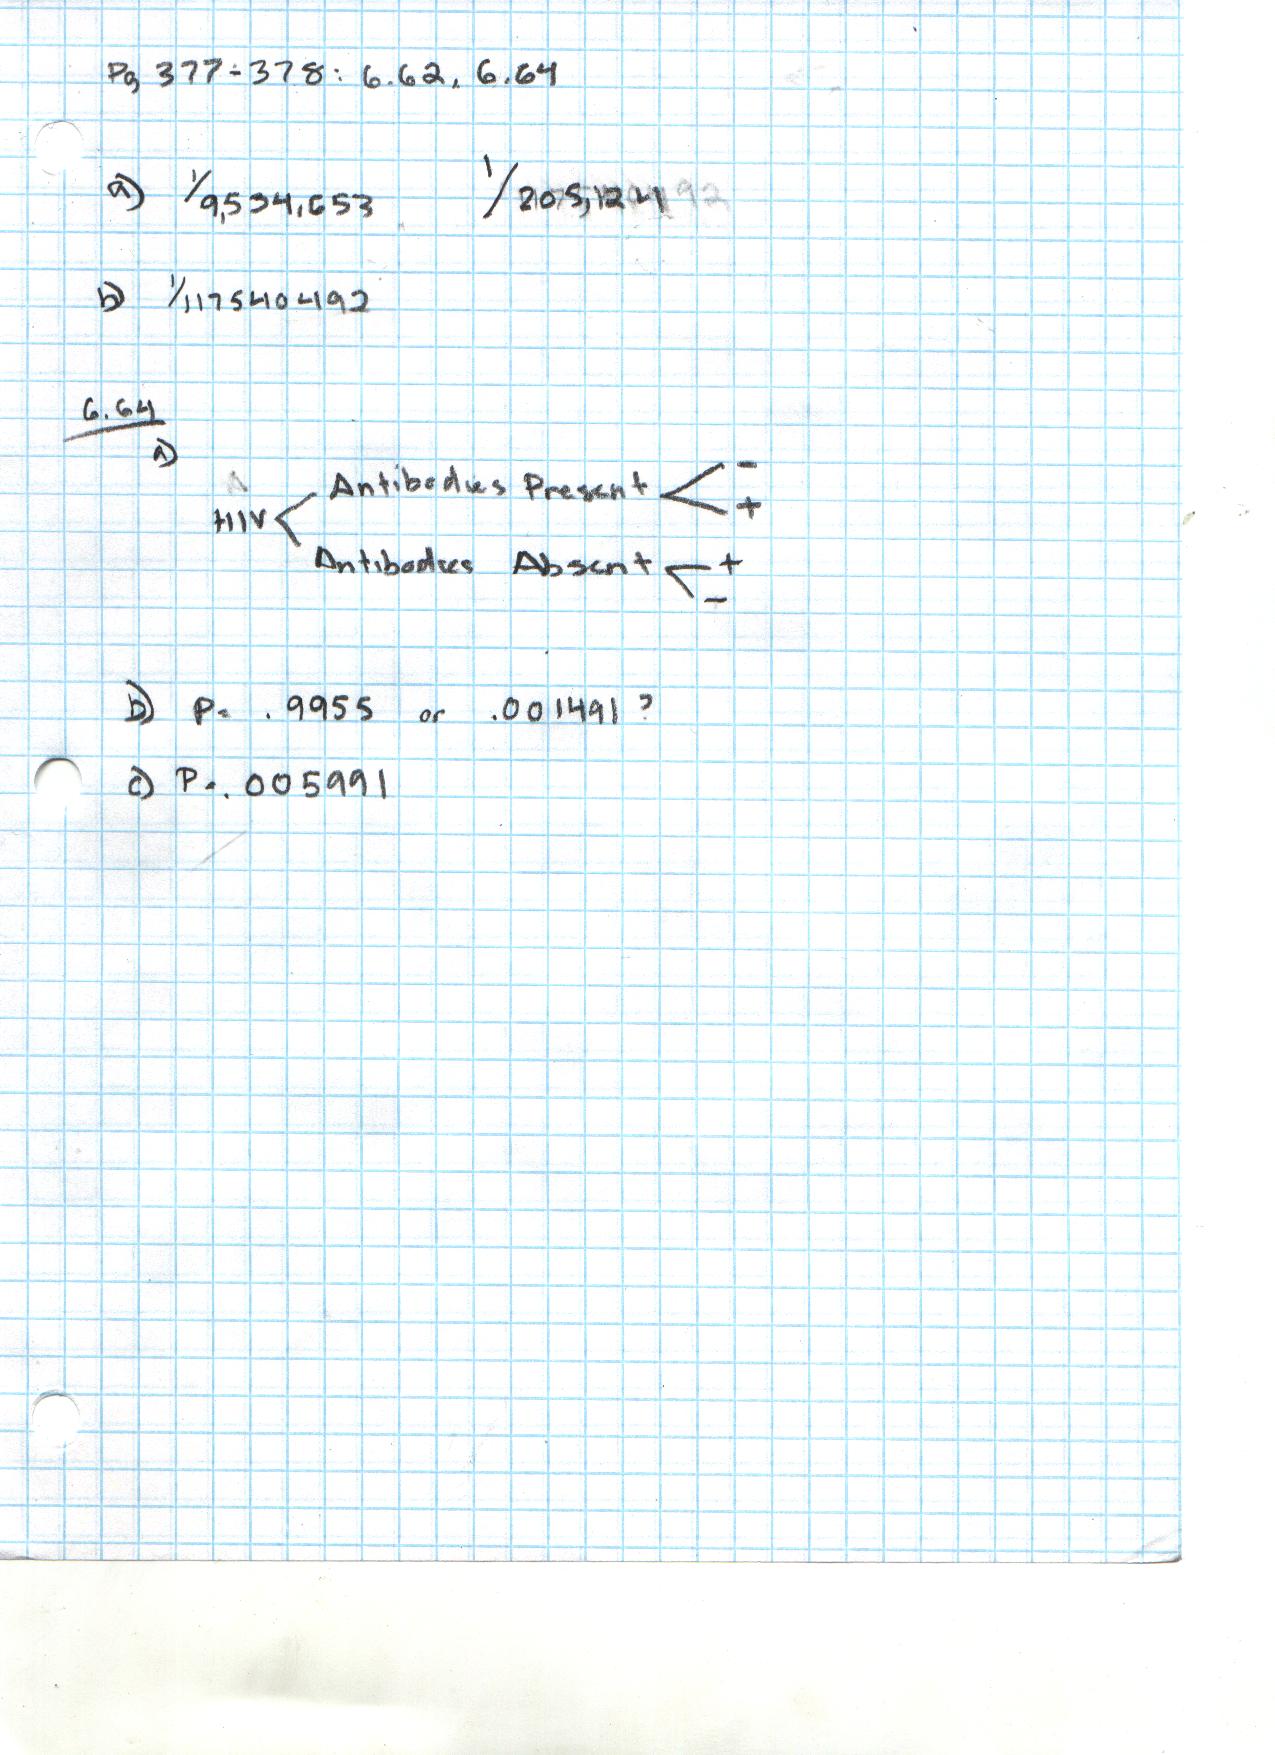 Pg 377-378: 6.62, 6.64
a) 1/9,534,653 1/205,124
b) 1/1175404192
6.64
a)
Antibodies Present -
HIV +
Antibodies Absent +
-
b) P= .9955 or .001491?
c) P=.005991